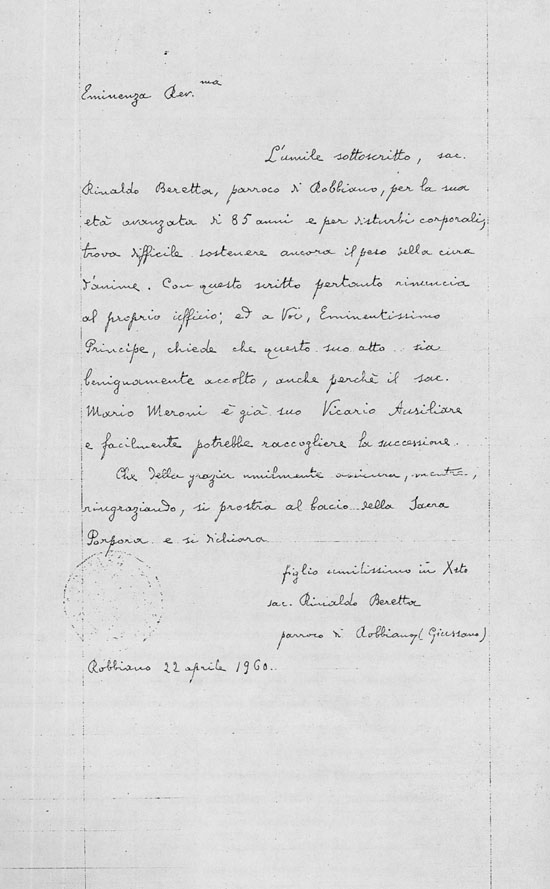 Eminenza Rev.ma
L'umile sottoscritto, sac.
Rinaldo Beretta, parroco di Robbiano, per la sua
età avanzata di 85 anni e per disturbi corporali,
trova difficile sostenere ancora il peso della cura
d'anime. Con questo scritto pertanto rinuncia
al proprio ufficio; ed a Voi, Eminentissimo
Principe, chiede che questo suo atto sia
benignamente accolto, anche perchè il sac.
Mario Meroni è già suo Vicario Ausiliare
e facilmente potrebbe raccogliere la successione.
Che della grazia umilmente assicura, mentre,
ringraziando, si prostra al bacio della Sacra
Porpora e si dichiara
figlio umilissimo in Xsto
sac. Rinaldo Beretta
parroco di Robbiano (Giussano)
Robbiano 22 aprile 1960.